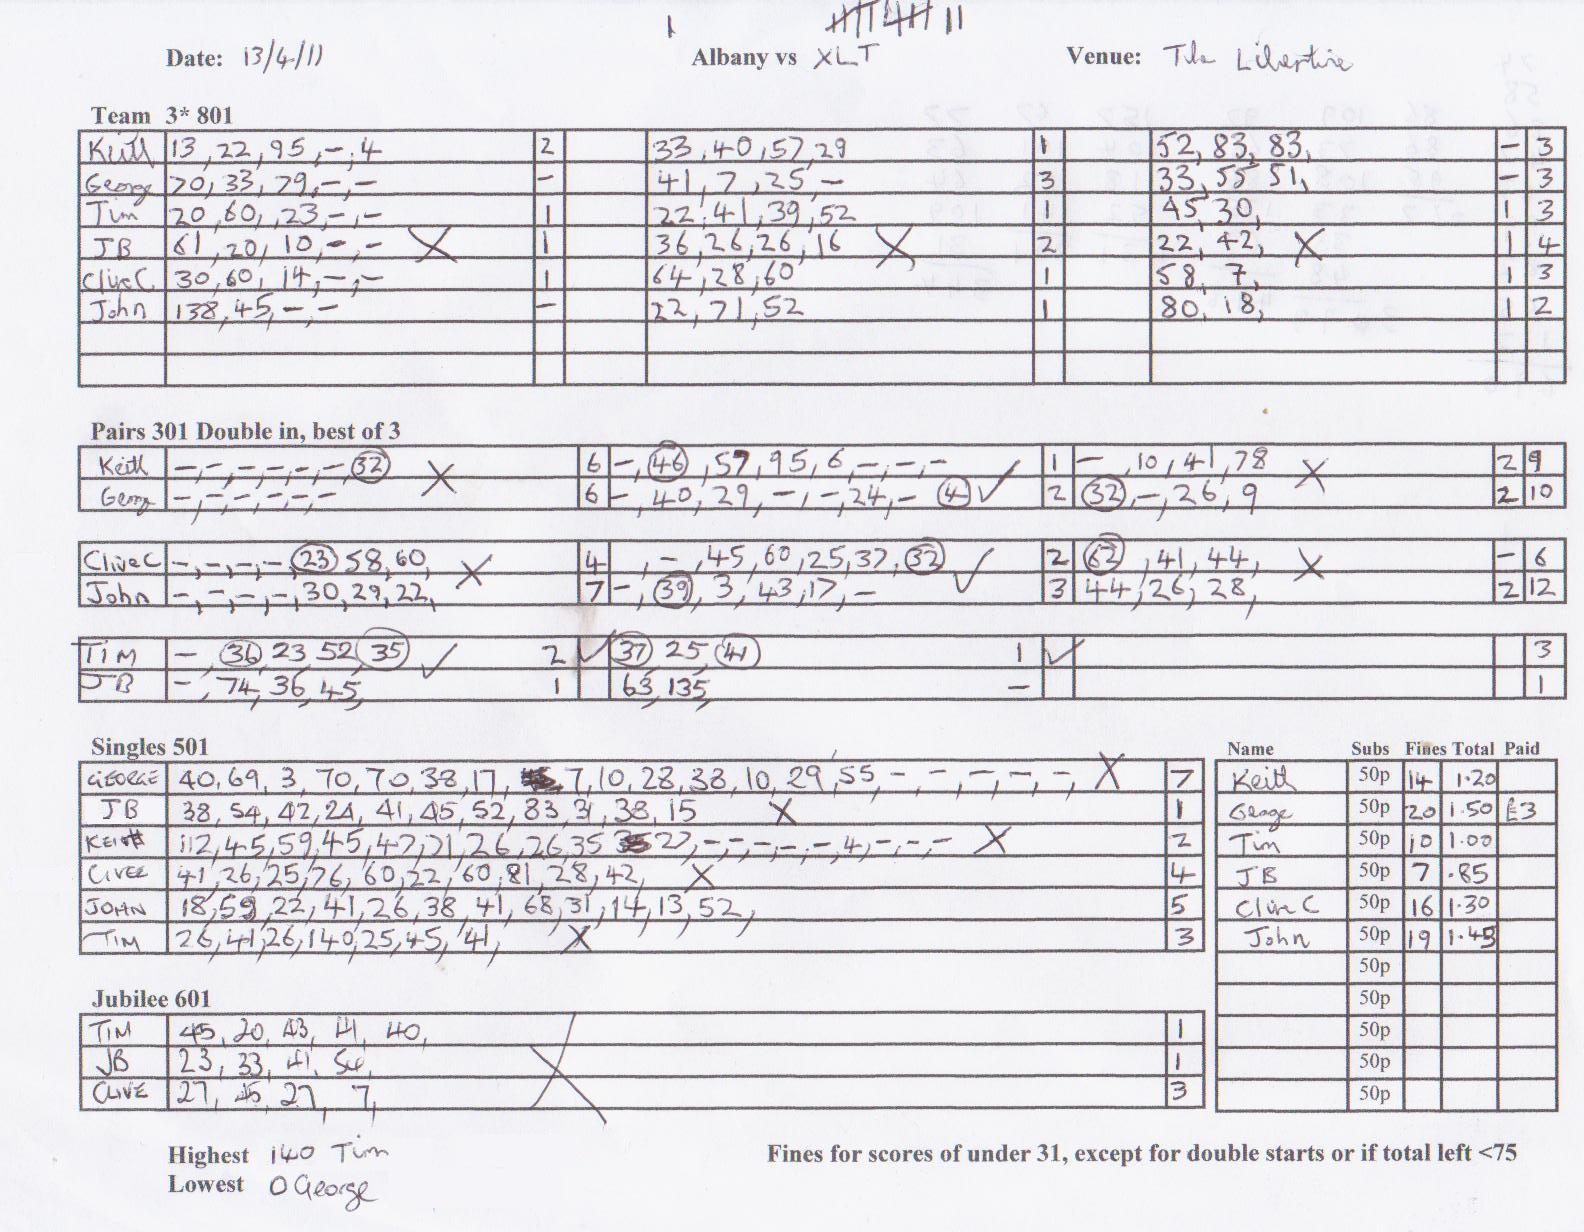 1 𝍸 𝍸 11
Date: 13/4/11 Albany vs XLT Venue: The Libertine
Team 3* 801
Keith 13, 22, 95, -, 4 2 33, 40, 57, 29 1 52, 83, 83, - 3
George 70, 33, 79, -, - - 41, 7, 25, - 3 33, 55, 51, - 3
Tim 20, 60, 23, -, - 1 22, 41, 39, 52 1 45, 30, 1 3
JB 61, 20, 10, -, - X 1 36, 26, 26, 16 X 2 22, 42, X 1 4
Clive C 30, 60, 14, -, - 1 64, 28, 60 1 58, 7, 1 3
John 138, 45, -, - - 22, 71, 52 1 80, 18, 1 2
Pairs 301 Double in, best of 3
Keith -, -, -, -, -, -, 32 X 6 -, 46, 57, 95, 6, -, -, - ✓ 1 -, 10, 41, 78 X 2 9
Georg -, -, -, -, -, - 6 -, 40, 29, -, -, 24, - 4 2 32, -, 26, 9 2 10
Clive C -, -, -, -, 23 58, 60, X 4 , -, 45, 60, 25, 37, 32 ✓ 2 62, 41, 44, X - 6
John -, -, -, -, 30, 29, 22, 7 -, 39, 3, 43, 17, - 3 44, 26, 28, 2 12
TIM -, 36, 23, 52, 35 ✓ 2 ✓ 37, 25, 41 1 ✓ 3
JB -, 74, 36, 45, 1 63, 135, - 1
Singles 501
GEORGE 40, 69, 3, 70, 70, 38, 17, 7, 10, 28, 38, 10, 29, 55, -, -, -, -, -, X 7
JB 38, 54, 42, 24, 41, 45, 52, 83, 31, 38, 15 X 1
KEITH 112, 45, 59, 45, 47, 21, 26, 26, 35 27, -, -, -, -, -, 4, -, -, - X 2
CLIVE 41, 26, 25, 76, 60, 22, 60, 81, 28, 42, X 4
JOHN 18, 59, 22, 41, 26, 38, 41, 68, 31, 14, 13, 52, 5
TIM 26, 41, 26, 140, 25, 45, 41, X 3
Name Subs Fines Total Paid
Keith 50p 14 1.20
George 50p 20 1.50 £3
Tim 50p 10 1.00
JB 50p 7 .85
Clive C 50p 16 1.30
John 50p 19 1.45
50p
50p
50p
50p
50p
Jubilee 601
TIM 45, 20, 43, 41, 40, 1
JB 23, 33, 41, 54, X 1
CLIVE 27, 45, 27, 7, 3
Highest 140 Tim
Lowest 0 George
Fines for scores of under 31, except for double starts or if total left <75